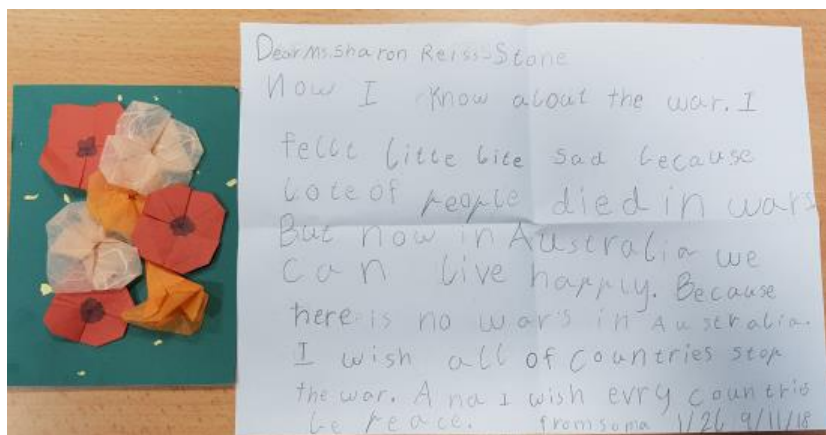 Dear Ms. Sharon Reiss-Stone
Now I know about the war. I
fellt litte bite sad because
Lote of people died in wars
But now in Australia we
can live happly. Because
here is no wars in Australia.
I wish all of countries stop
the war. And I wish evry countrie
be peace. from soma 1/26 9/11/18